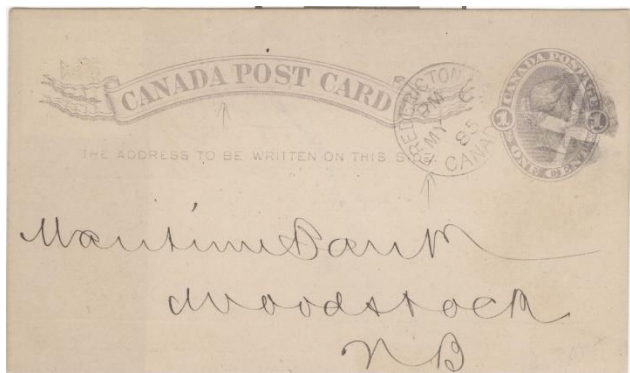 CANADA POST CARD
THE ADDRESS TO BE WRITTEN ON THIS SIDE
FREDERICTON
PM
MY 6
85
CANADA
CANADA POSTAGE
1 1
ONE CENT
Maritime Bank
Woodstock
NB